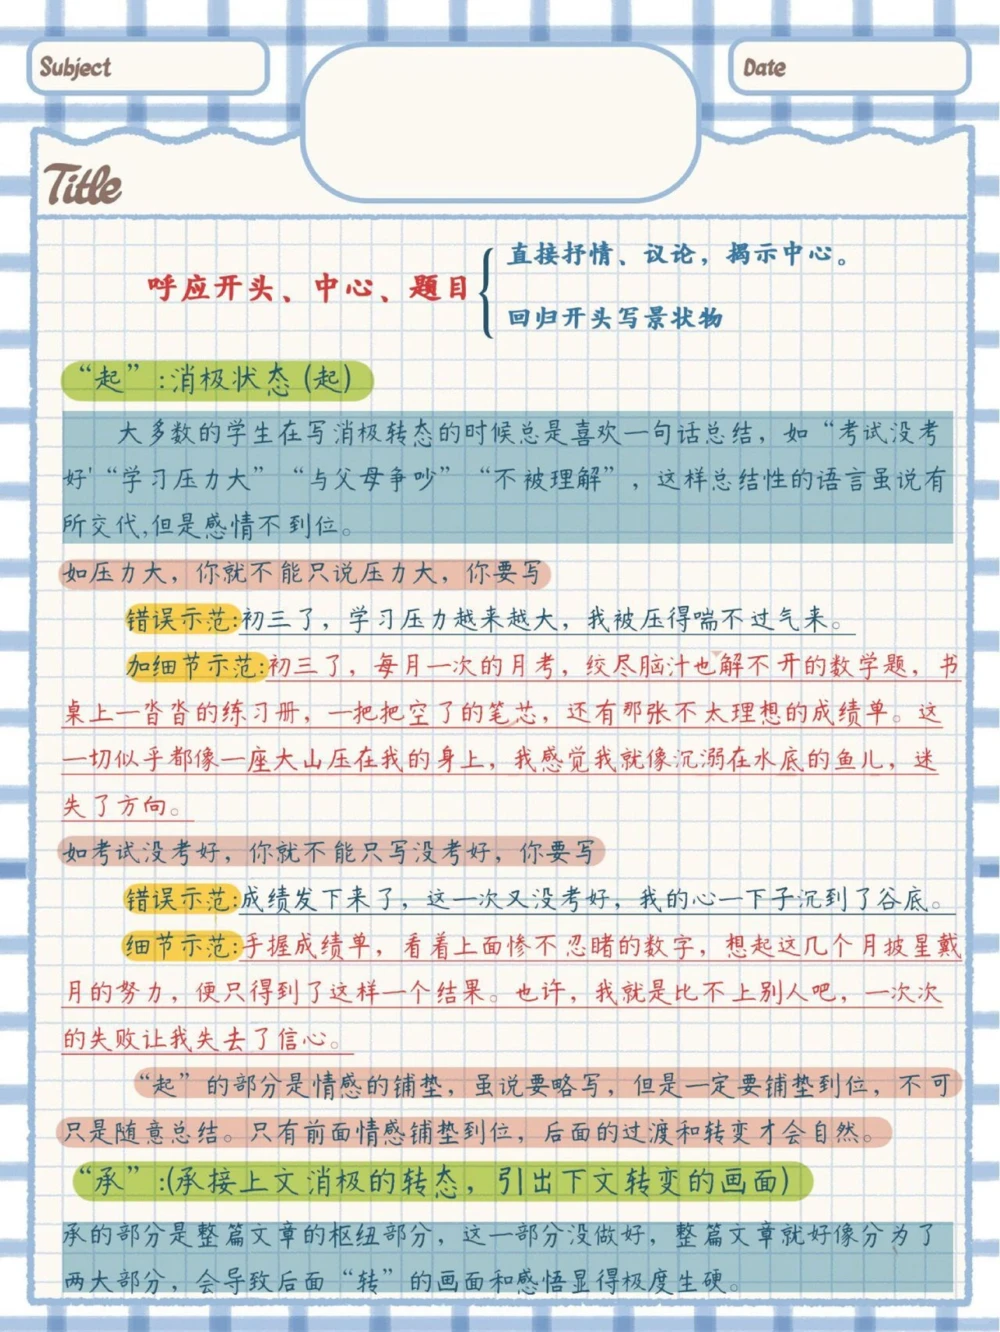 Subject
Date
Title
直接抒情、议论，揭示中心。
呼应开头、中心、题目
回归开头写景状物
“起”:消极状态(起)
大多数的学生在写消极转态的时候总是喜欢一句话总结，如“考试没考
好'“学习压力大”“与父母争吵”“不被理解”，这样总结性的语言虽说有
所交代,但是感情不到位。
如压力大，你就不能只说压力大，你要写
错误示范:初三了，学习压力越来越大，我被压得喘不过气来。
加细节示范:初三了，每月一次的月考，绞尽脑汁也解不开的数学题，书
桌上一沓沓的练习册，一把把空了的笔芯，还有那张不太理想的成绩单。这
一切似乎都像一座大山压在我的身上，我感觉我就像沉溺在水底的鱼儿，迷
失了方向。
如考试没考好，你就不能只写没考好，你要写
错误示范:成绩发下来了，这一次又没考好，我的心一下子沉到了谷底。
细节示范:手握成绩单，看着上面惨不忍睹的数字，想起这几个月披星戴
月的努力，便只得到了这样一个结果。也许，我就是比不上别人吧，一次次
的失败让我失去了信心。
“起”的部分是情感的铺垫，虽说要略写，但是一定要铺垫到位，不可
只是随意总结。只有前面情感铺垫到位，后面的过渡和转变才会自然。
“承”:(承接上文消极的转态，引出下文转变的画面)
承的部分是整篇文章的枢纽部分，这一部分没做好，整篇文章就好像分为了
两大部分，会导致后面“转”的画面和感悟显得极度生硬。